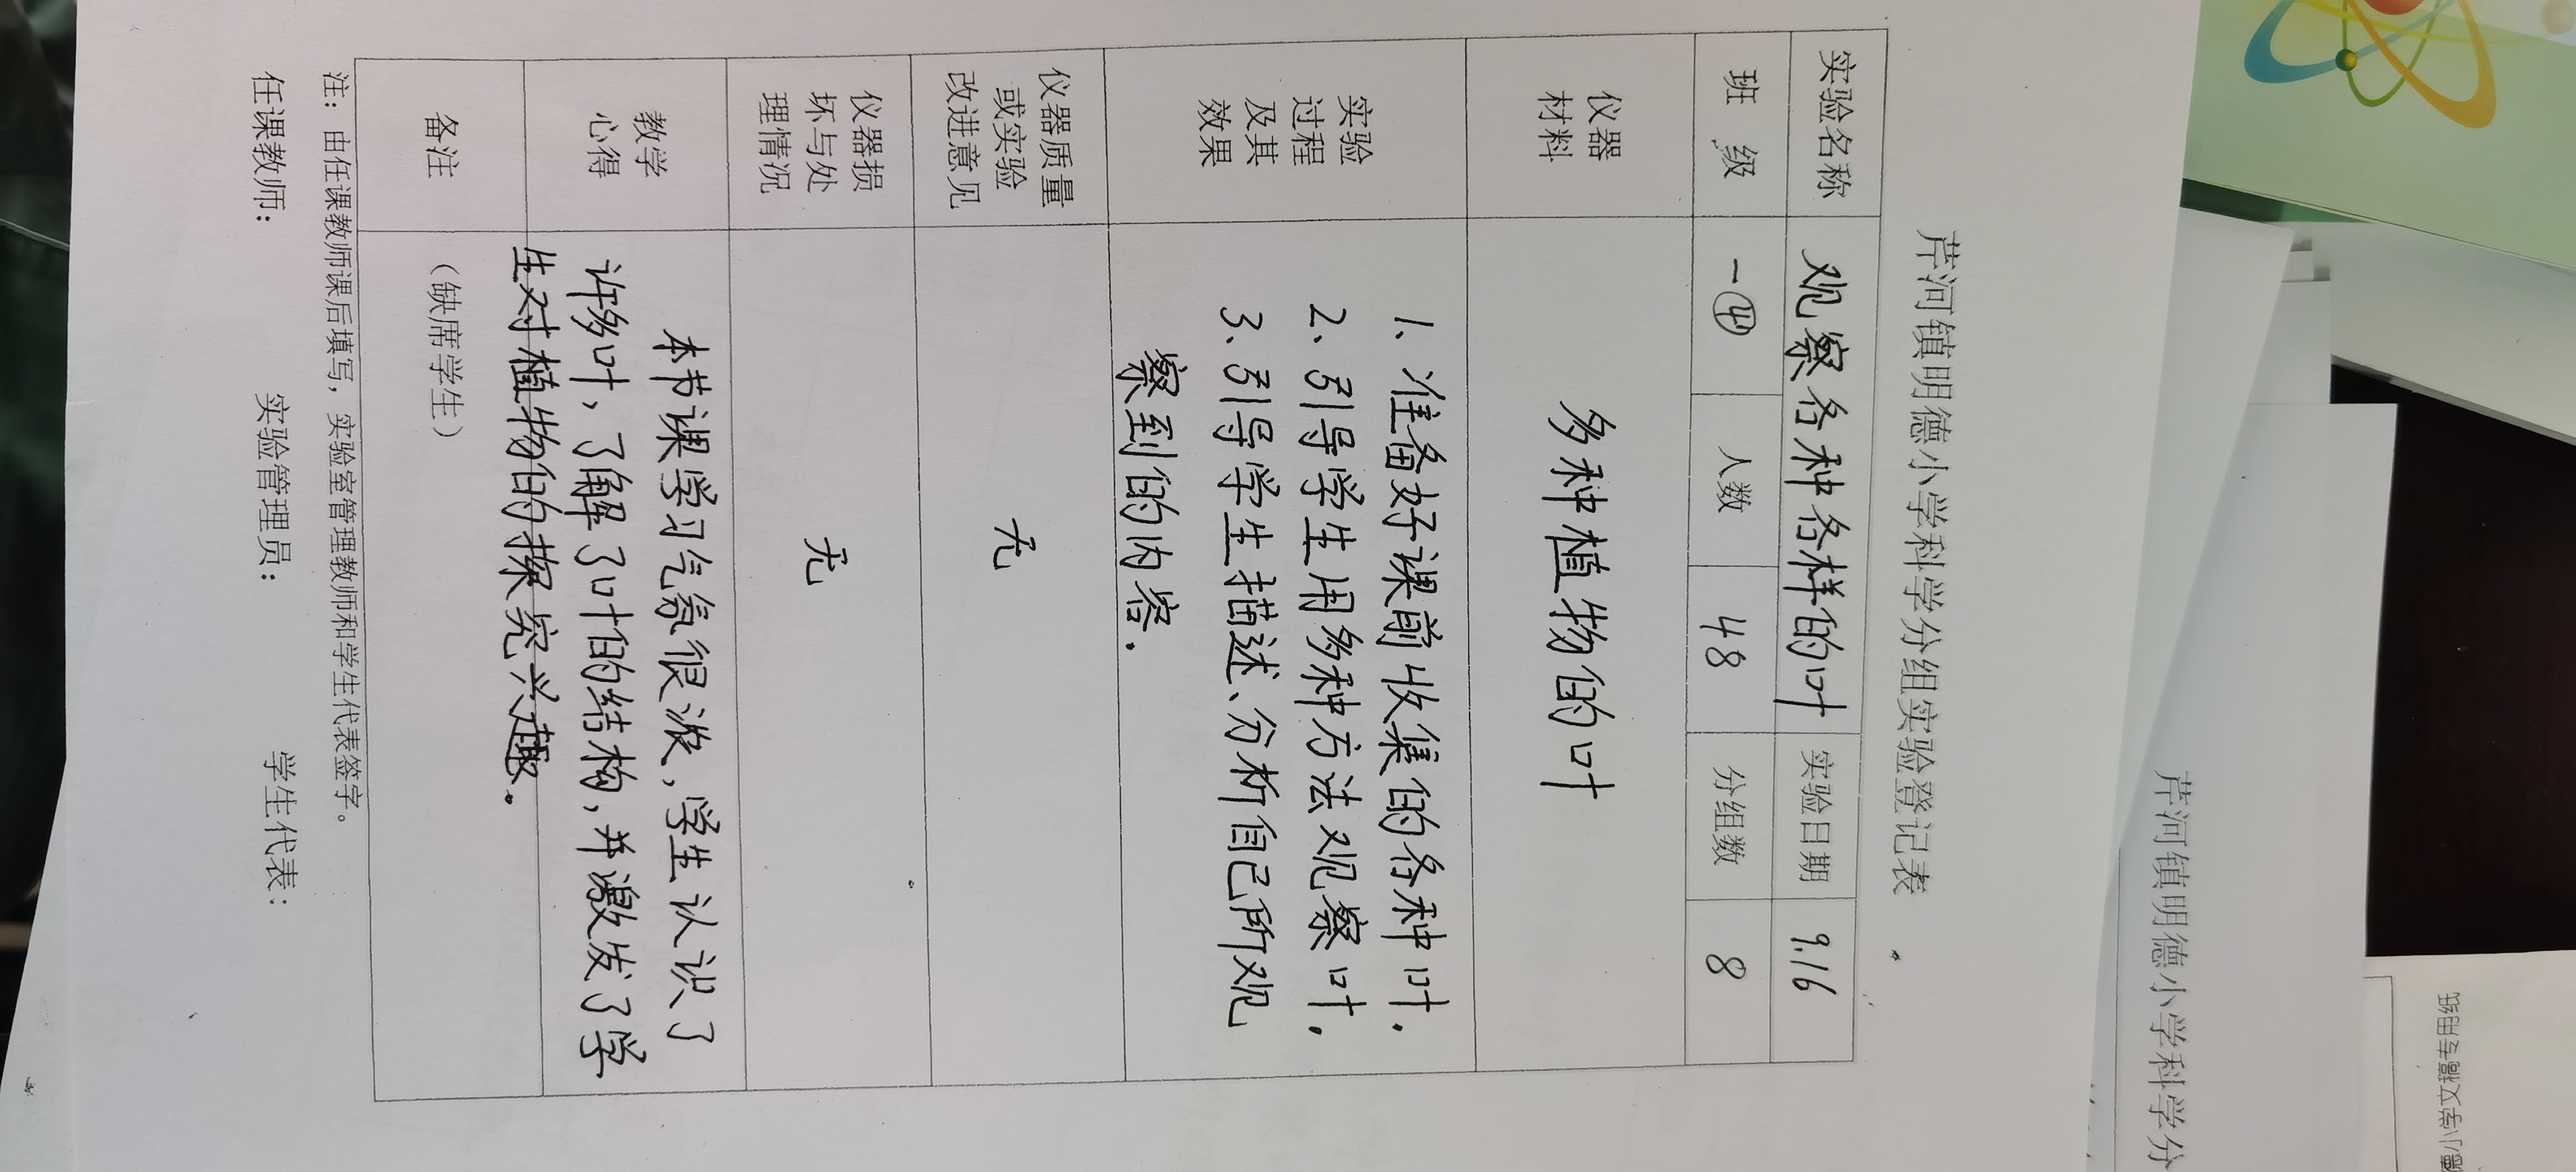 芹河镇明德小学科学分组实验登记表
实验名称 观察各种各样的叶 实验日期 9.16
班 级 一④ 人数 48 分组数 8
仪器
材料
多种植物的叶
实验
过程
及其
效果
1、准备好课前收集的各种叶.
2、引导学生用多种方法观察叶,
3、引导学生描述、分析自己所观
察到的内容.
仪器质量
或实验
改进意见
无
仪器损
坏与处
理情况
无
教学
心得
本节课学习气氛很浓,学生认识了
许多叶,了解了叶的结构,并激发了学
生对植物的探究兴趣.
备注
（缺席学生）
注：由任课教师课后填写，实验室管理教师和学生代表签字。
任课教师： 实验管理员： 学生代表：
芹河镇明德小学科学分
德小学文稿专用纸